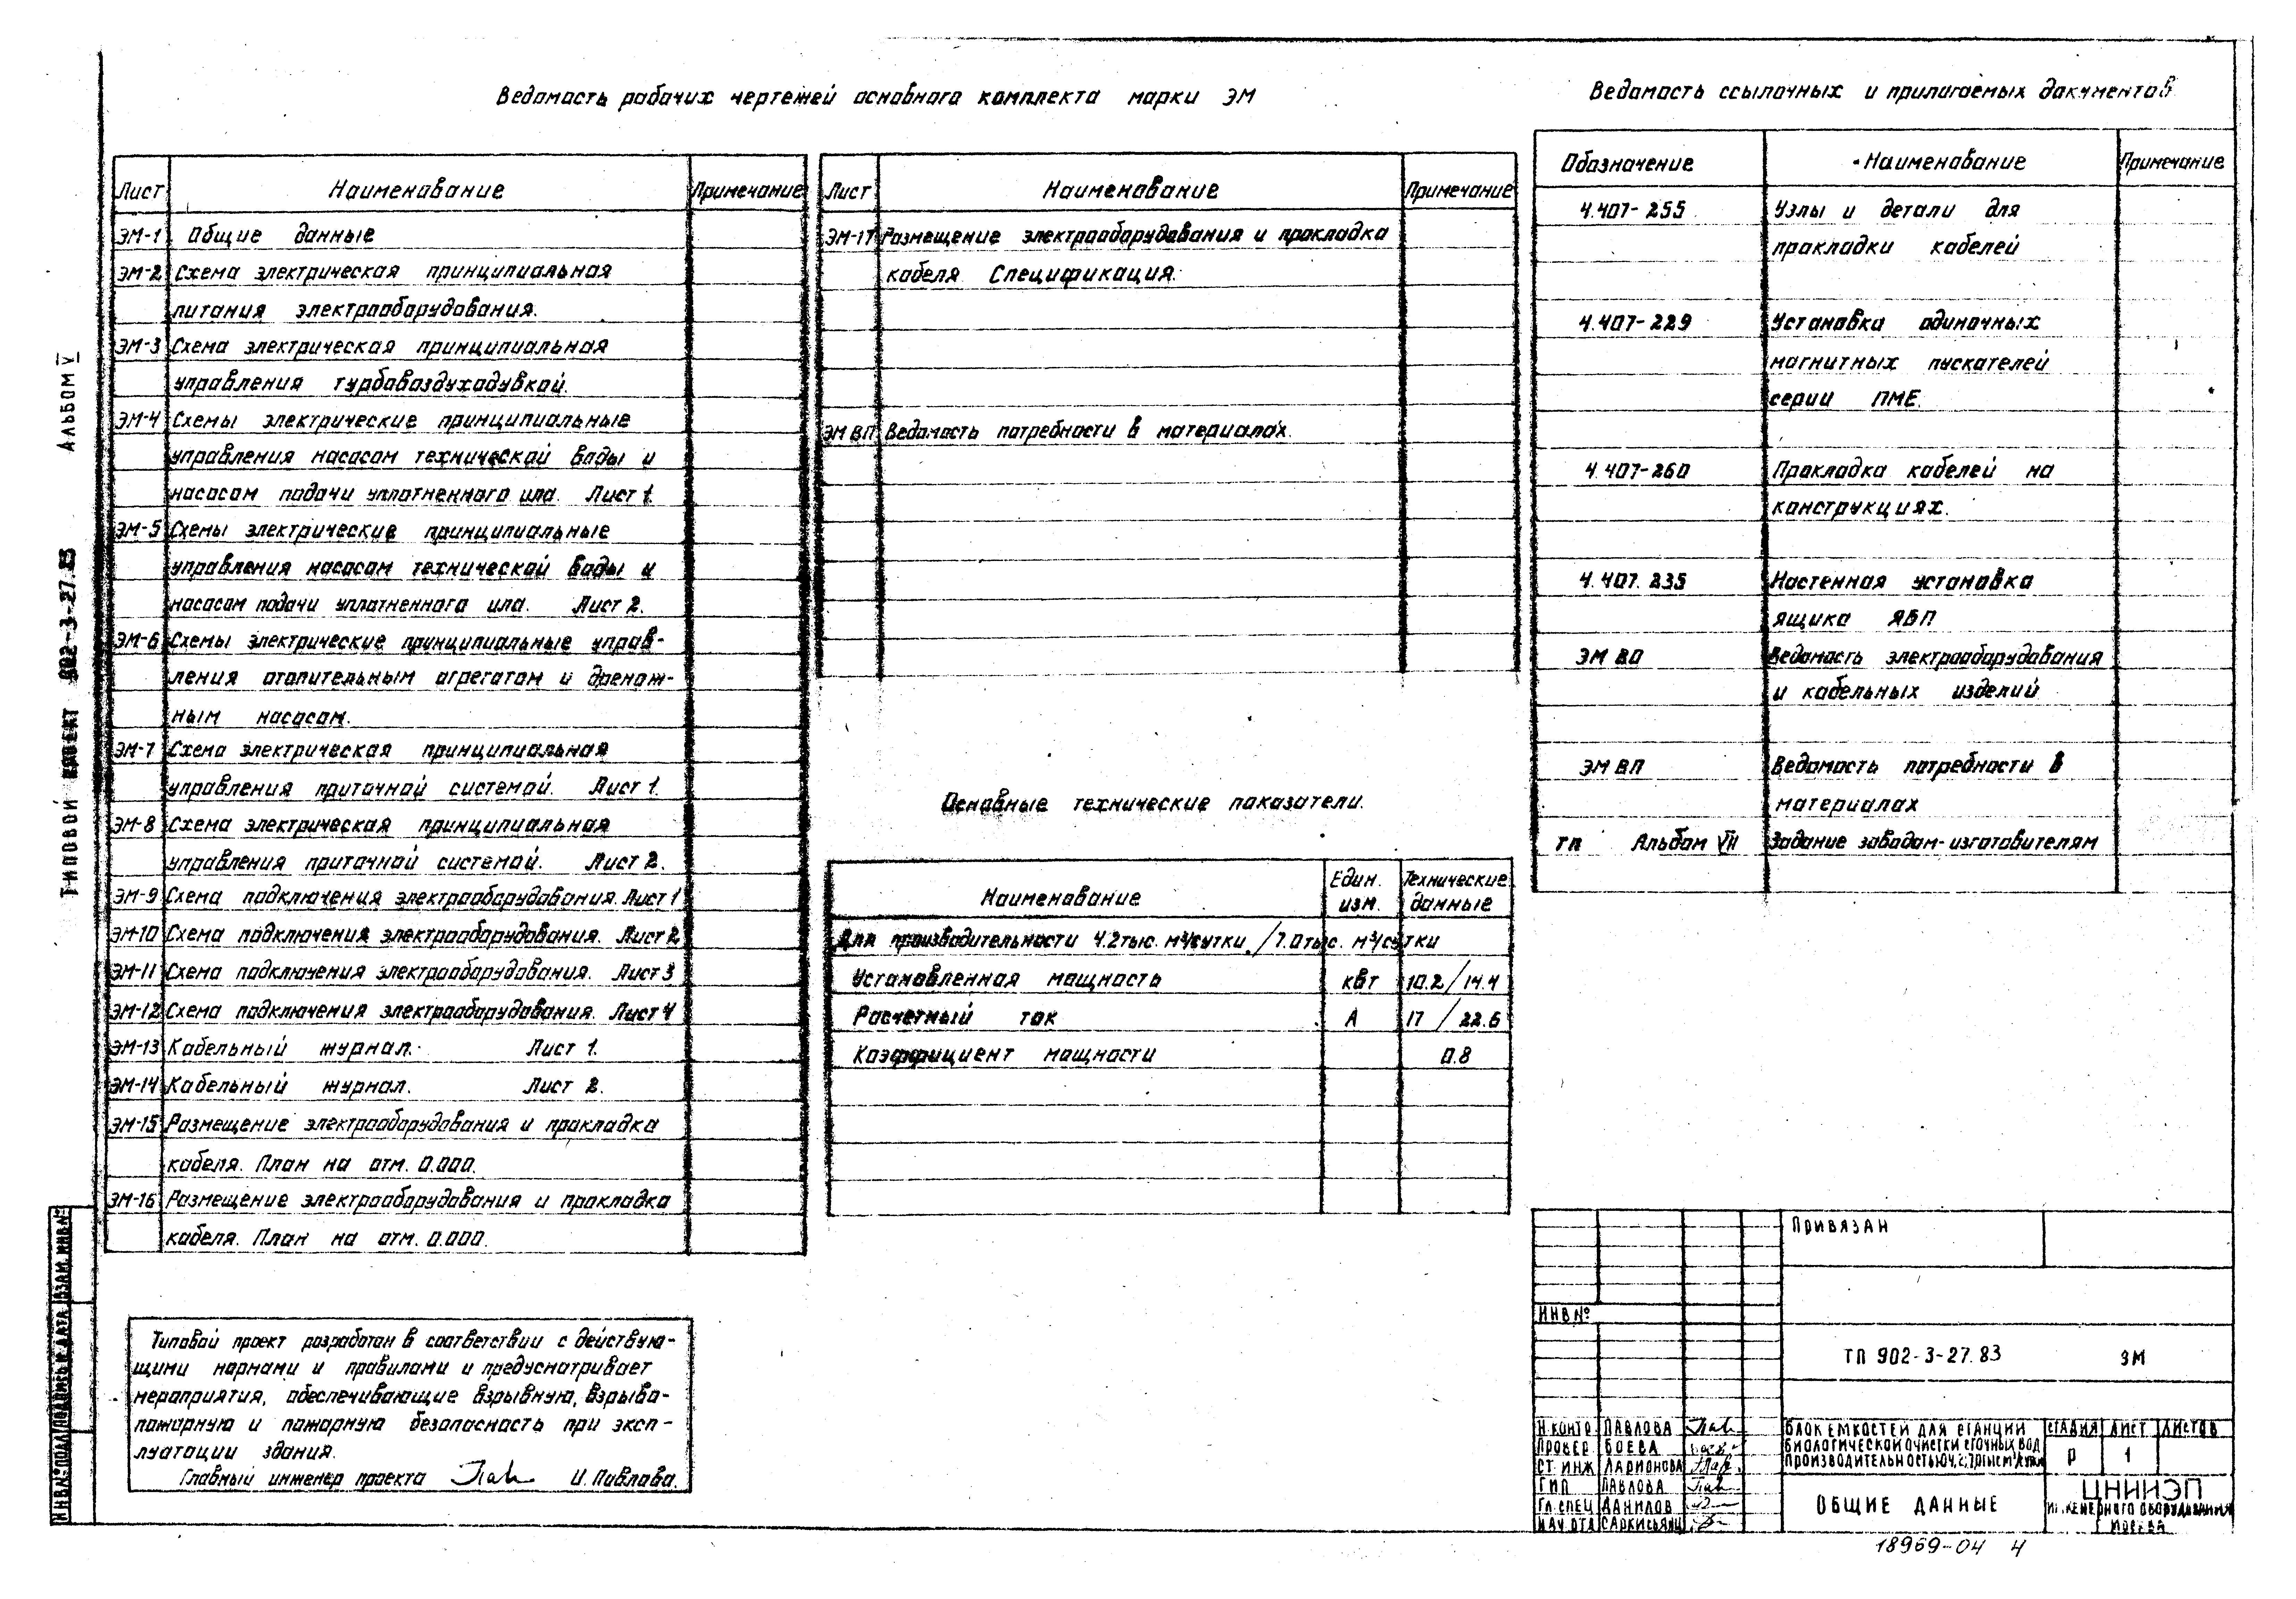 Ведомость рабочих чертежей основного комплекта марки ЭМ
Лист Наименование Примечание
ЭМ-1 Общие данные
ЭМ-2 Схема электрическая принципиальная
питания электрооборудования.
ЭМ-3 Схема электрическая принципиальная
управления турбовоздуходувкой.
ЭМ-4 Схемы электрические принципиальные
управления насосом технической воды и
насосом подачи уплотненного ила. Лист 1.
ЭМ-5 Схемы электрические принципиальные
управления насосом технической воды и
насосом подачи уплотненного ила. Лист 2.
ЭМ-6 Схемы электрические принципиальные управ-
ления отопительным агрегатом и дренаж-
ным насосом.
ЭМ-7 Схема электрическая принципиальная
управления приточной системой. Лист 1.
ЭМ-8 Схема электрическая принципиальная
управления приточной системой. Лист 2.
ЭМ-9 Схема подключения электрооборудования. Лист 1
ЭМ-10 Схема подключения электрооборудования. Лист 2
ЭМ-11 Схема подключения электрооборудования. Лист 3
ЭМ-12 Схема подключения электрооборудования. Лист 4
ЭМ-13 Кабельный журнал. Лист 1.
ЭМ-14 Кабельный журнал. Лист 2.
ЭМ-15 Размещение электрооборудования и прокладка
кабеля. План на отм. 0.000.
ЭМ-16 Размещение электрооборудования и прокладка
кабеля. План на отм. 0.000.
Лист Наименование Примечание
ЭМ-17 Размещение электрооборудования и прокладка
кабеля Спецификация.
ЭМ ВП Ведомость потребности в материалах.
Основные технические показатели.
Наименование Един. изм. Технические данные
Для производительности 4.2тыс. м³/сутки / 7.0тыс. м³/сутки
Установленная мощность квт 10.2/14.4
Расчетный ток А 17 / 22.6
Коэффициент мощности 0.8
Ведомость ссылочных и прилагаемых документов
Обозначение Наименование Примечание
4.407-255 Узлы и детали для
прокладки кабелей
4.407-229 Установка одиночных
магнитных пускателей
серии ПМЕ.
4.407-260 Прокладка кабелей на
конструкциях.
4.407.235 Настенная установка
ящика ЯБП
ЭМ ВО Ведомость электрооборудования
и кабельных изделий
ЭМ ВП Ведомость потребности в
материалах
ТП Альбом VII Задание заводам-изготовителям
Типовой проект разработан в соответствии с действую-
щими нормами и правилами и предусматривает
мероприятия, обеспечивающие взрывную, взрыво-
пожарную и пожарную безопасность при эксп-
луатации здания.
Главный инженер проекта И. Павлова.
ТИПОВОЙ ПРОЕКТ 902-3-27.83 АЛЬБОМ V
ИНВ.№ПОДЛ. ПОДПИСЬ И ДАТА ВЗАМ. ИНВ.№
ПРИВЯЗАН
ИНВ №
ТП 902-3-27.83 ЭМ
Н.КОНТР. ПАВЛОВА
ПРОВЕР. БОЕВА
СТ. ИНЖ ЛАРИОНОВА
ГИП ПАВЛОВА
ГЛ.СПЕЦ ДАНИЛОВ
НАЧ.ОТД САРКИСЬЯНЦ
БЛОК ЕМКОСТЕЙ ДЛЯ СТАНЦИИ
БИОЛОГИЧЕСКОЙ ОЧИСТКИ СТОЧНЫХ ВОД
ПРОИЗВОДИТЕЛЬНОСТЬЮ
СТАДИЯ ЛИСТ ЛИСТОВ
Р 1
ОБЩИЕ ДАННЫЕ
ЦНИИЭП
ИНЖЕНЕРНОГО ОБОРУДОВАНИЯ
МОСКВА
18969-04 4